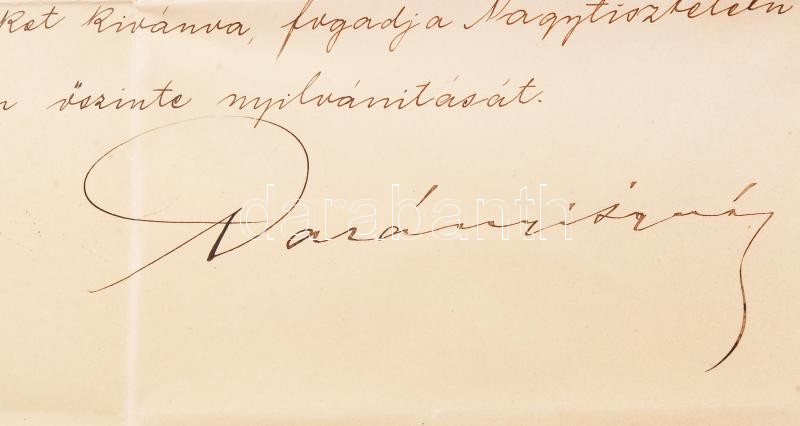 ket kivánva, fogadja Nagytiszteletű
n őszinte nyilvánitását.
Darányi Ignác
darabanth